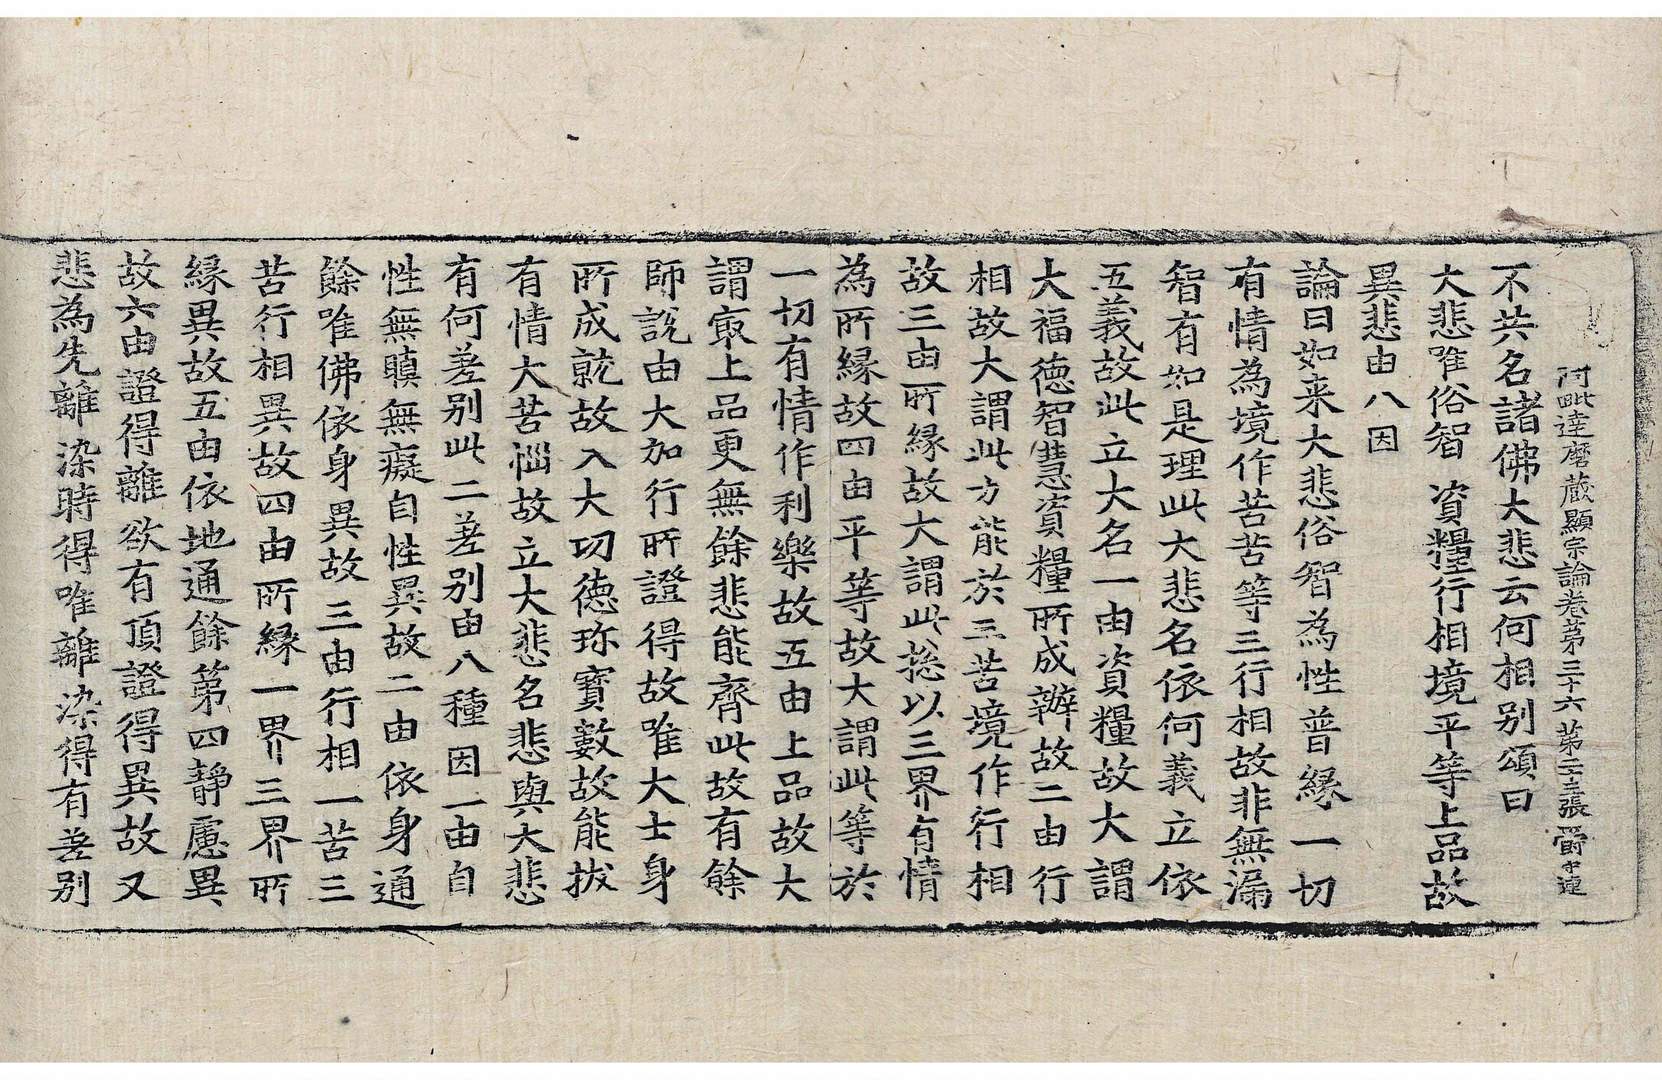 阿毗達磨蔵顯宗論卷苐三十六 苐二十三張 爵
不共名諸佛大悲云何相别頌曰
大悲唯俗智 資糧行相境平等上品故
異悲由八因
論曰如来大悲俗智為性普縁一切
有情為境作苦苦等三行相故非無漏
智有如是理此大悲名依何義立依
五義故此立大名一由資糧故大謂
大福德智慧資糧所成辦故二由行
相故大謂此方能於三苦境作行相
故三由所縁故大謂此捴以三界有情
為所縁故四由平等故大謂此等於
一切有情作利樂故五由上品故大
謂㝡上品更無餘悲能齊此故有餘
師說由大加行所證得故唯大士身
所成就故入大功德珎寳數故能拔
有情大苦惱故立大悲名悲與大悲
有何差别此二差别由八種因一由自
性無瞋無癡自性異故二由依身通
餘唯佛依身異故三由行相一苦三
苦行相異故四由所縁一界三界所
縁異故五由依地通餘第四静慮異
故六由證得離欲有頂證得異故又
悲為先離染時得唯離染得有差别